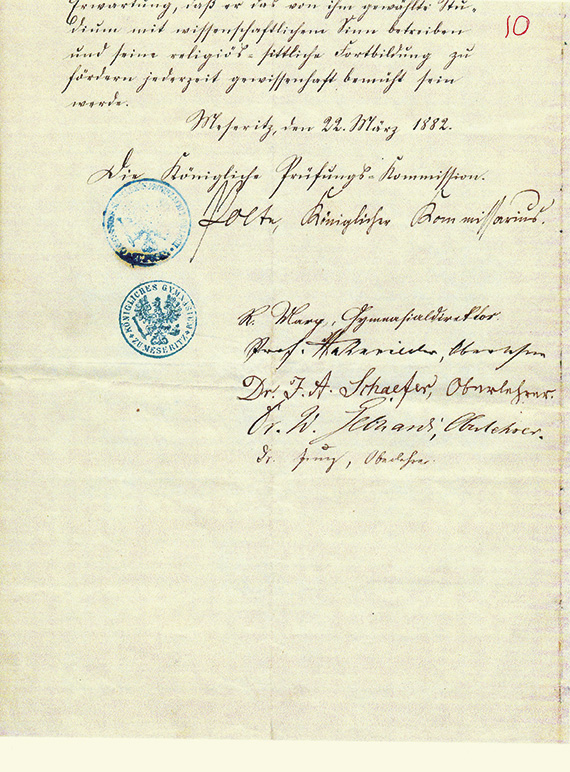 10
Erwartung, daß er das von ihm gewählte Stu-
dium mit wissenschaftlichem Sinn betreiben
und seine religiös-sittliche Fortbildung zu
fördern jederzeit gewissenhaft bemüht sein
werde.
Meseritz, den 22. März 1882.
Die Königliche Prüfungs-Kommission.
Polte, Königlicher Kommissarius.
KÖNIGLICHES GYMNASIUM
ZU MESERITZ
R. Marg, Gymnasialdirektor
Prof. Oberlehrer
Dr. J. A. Schaefer, Oberlehrer.
Dr. W. Oberlehrer.
Dr. Oberlehrer.